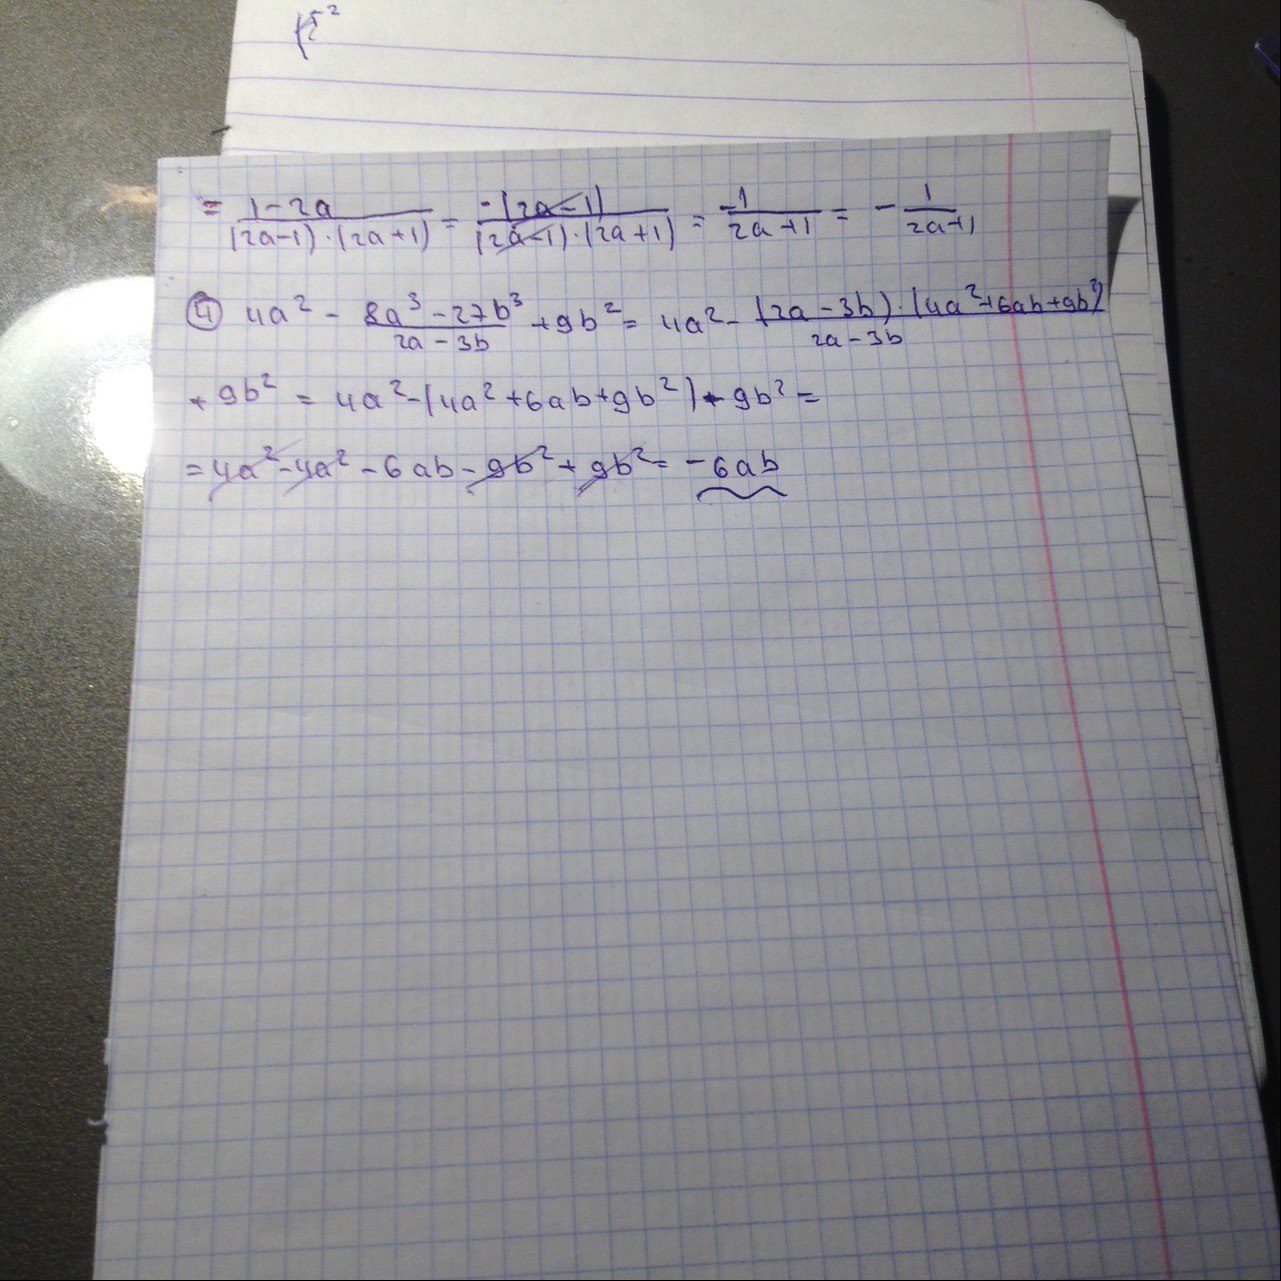 = (1-2a)/((2a-1)·(2a+1)) = (-(2a-1))/((2a-1)·(2a+1)) = (-1)/(2a+1) = - 1/(2a+1)
④ 4a² - (8a³-27b³)/(2a-3b) + 9b² = 4a² - ((2a-3b)·(4a²+6ab+9b²))/(2a-3b)
+ 9b² = 4a²-(4a²+6ab+9b²)+9b² =
= 4a²-4a²-6ab-9b²+9b² = -6ab